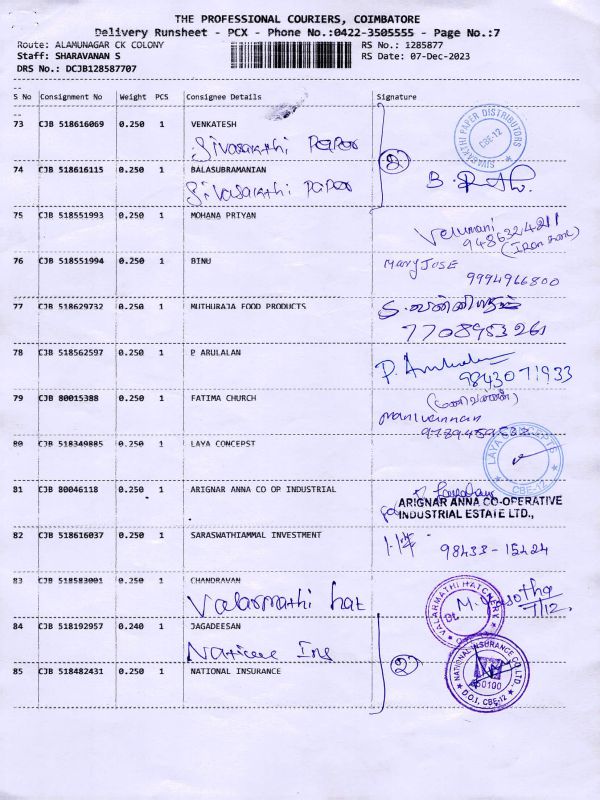 THE PROFESSIONAL COURIERS, COIMBATORE
Delivery Runsheet - PCX - Phone No.:0422-3505555 - Page No.:7
Route: ALAMUNAGAR CK COLONY RS No.: 1285877
Staff: SHARAVANAN S RS Date: 07-Dec-2023
DRS No.: DCJB128587707
S No Consignment No Weight PCS Consignee Details Signature
73 CJB 518616069 0.250 1 VENKATESH
Sivasakthi Paper
SIVASAKTHI PAPER DISTRIBUTORS CBE-12
2
74 CJB 518616115 0.250 1 BALASUBRAMANIAN
Sivasakthi Paper
75 CJB 518551993 0.250 1 MOHANA PRIYAN
Velumani
9486324211
76 CJB 518551994 0.250 1 BINU
Mary JOSE
9994966800
77 CJB 518629732 0.250 1 MUTHURAJA FOOD PRODUCTS
7708953261
78 CJB 518562597 0.250 1 P ARULALAN
P. Arulalan
9843071933
79 CJB 80015388 0.250 1 FATIMA CHURCH
(மணிவண்ணன்)
manivannan
80 CJB 518349885 0.250 1 LAYA CONCEPST
LAYA CONCEPTS CBE-12
81 CJB 80046118 0.250 1 ARIGNAR ANNA CO OP INDUSTRIAL
ARIGNAR ANNA CO-OPERATIVE
INDUSTRIAL ESTATE LTD.,
82 CJB 518616037 0.250 1 SARASWATHIAMMAL INVESTMENT
98433-15424
83 CJB 518583001 0.250 1 CHANDRAVAN
Valarmathi hat
VALARMATHI HATCHERY
M. Yasotha
7/12.
84 CJB 518192957 0.240 1 JAGADEESAN
2
NATIONAL INSURANCE CO LTD., D.O.I, CBE-12
85 CJB 518482431 0.250 1 NATIONAL INSURANCE